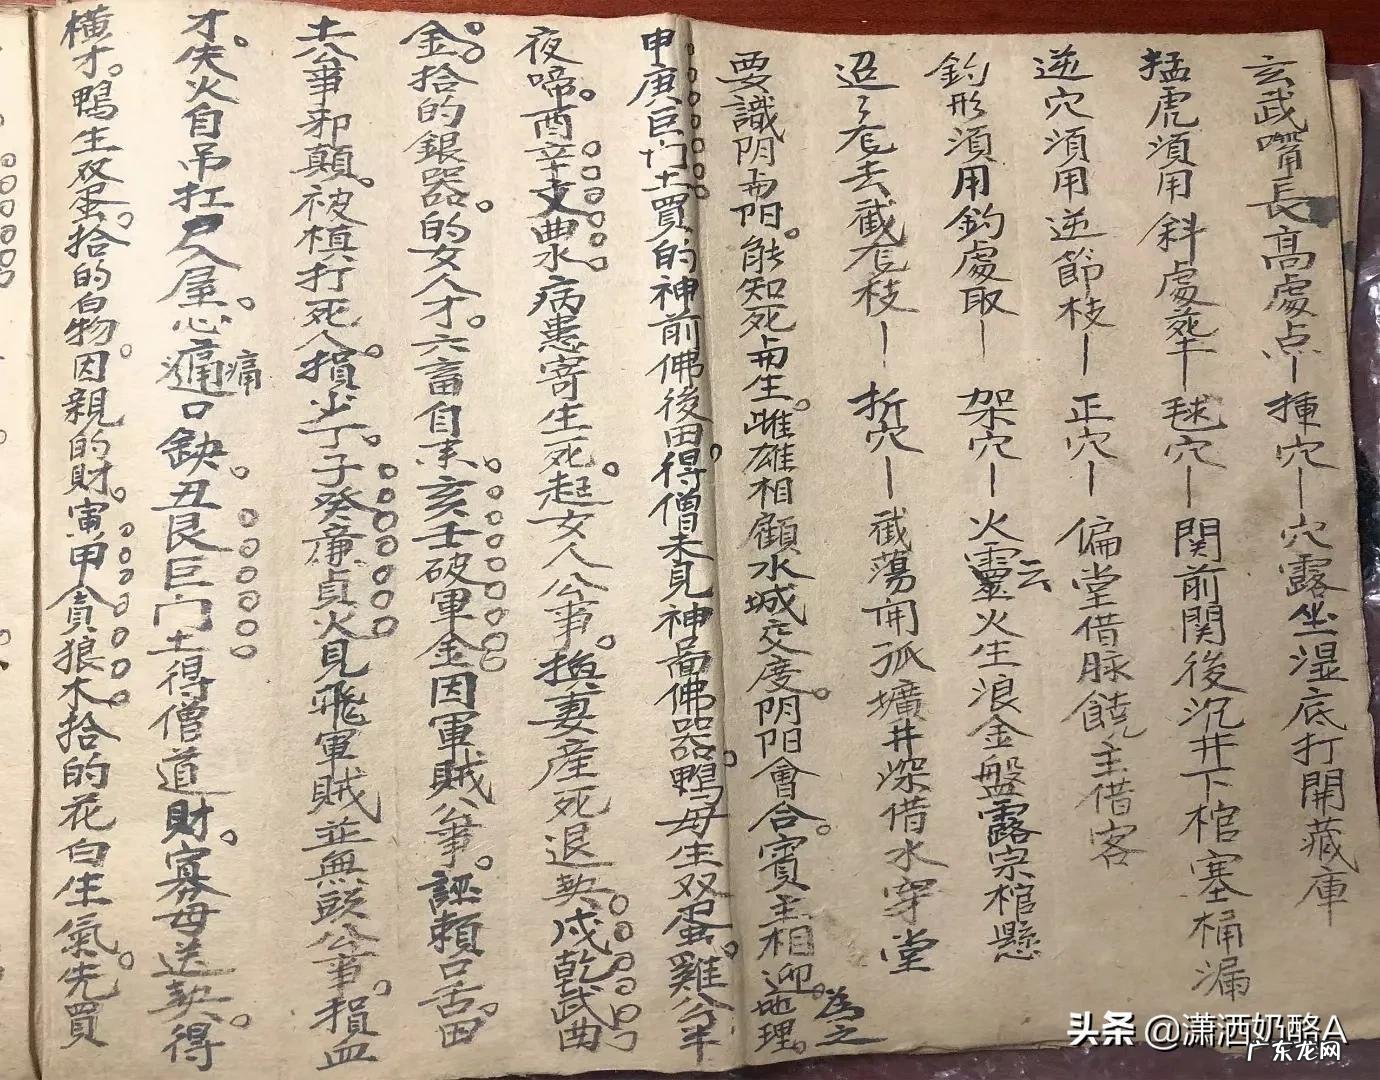 玄武嘴長高處点－揷穴－穴露坐湿底打開藏庫
猛虎須用斜處葬－毬穴－関前関後沉井下棺塞桶漏
逆穴須用逆節枝－正穴－偏堂借脉饒主借客
釣形須用釣處取－架穴－火靈云火生浪金盤露宗棺懸
迢々去截枝－折穴－截蕩開孤壙井深借水穿堂
要識阴與阳。能知死與生。雌雄相顧水城交度。阴阳會合。賓主相迎。地理。為之
申庚巨门土買的神前佛後田。得僧未見神啚佛器。鴨母生双蛋。雞公半
夜啼。酉辛文曲水病患寄生死。起女人公事。損妻產死退契。戌乾武曲
金。拾的銀器。的女人才。六畜自来。亥壬破軍金因軍賊公事。誣賴口舌。田
土公事邪顛。被槙打死人。損少丁。子癸廉貞火見飛軍賊並無頭公事。損血
才。失火自吊扛尸入屋。心痛口缺。丑艮巨门土得僧道財。寡母送契。得
痛
横才。鴨生双蛋。拾的白物。因親的財。寅甲貪狼木拾的花白生氣。先買
头条 @潇洒奶酪A
广东龙网